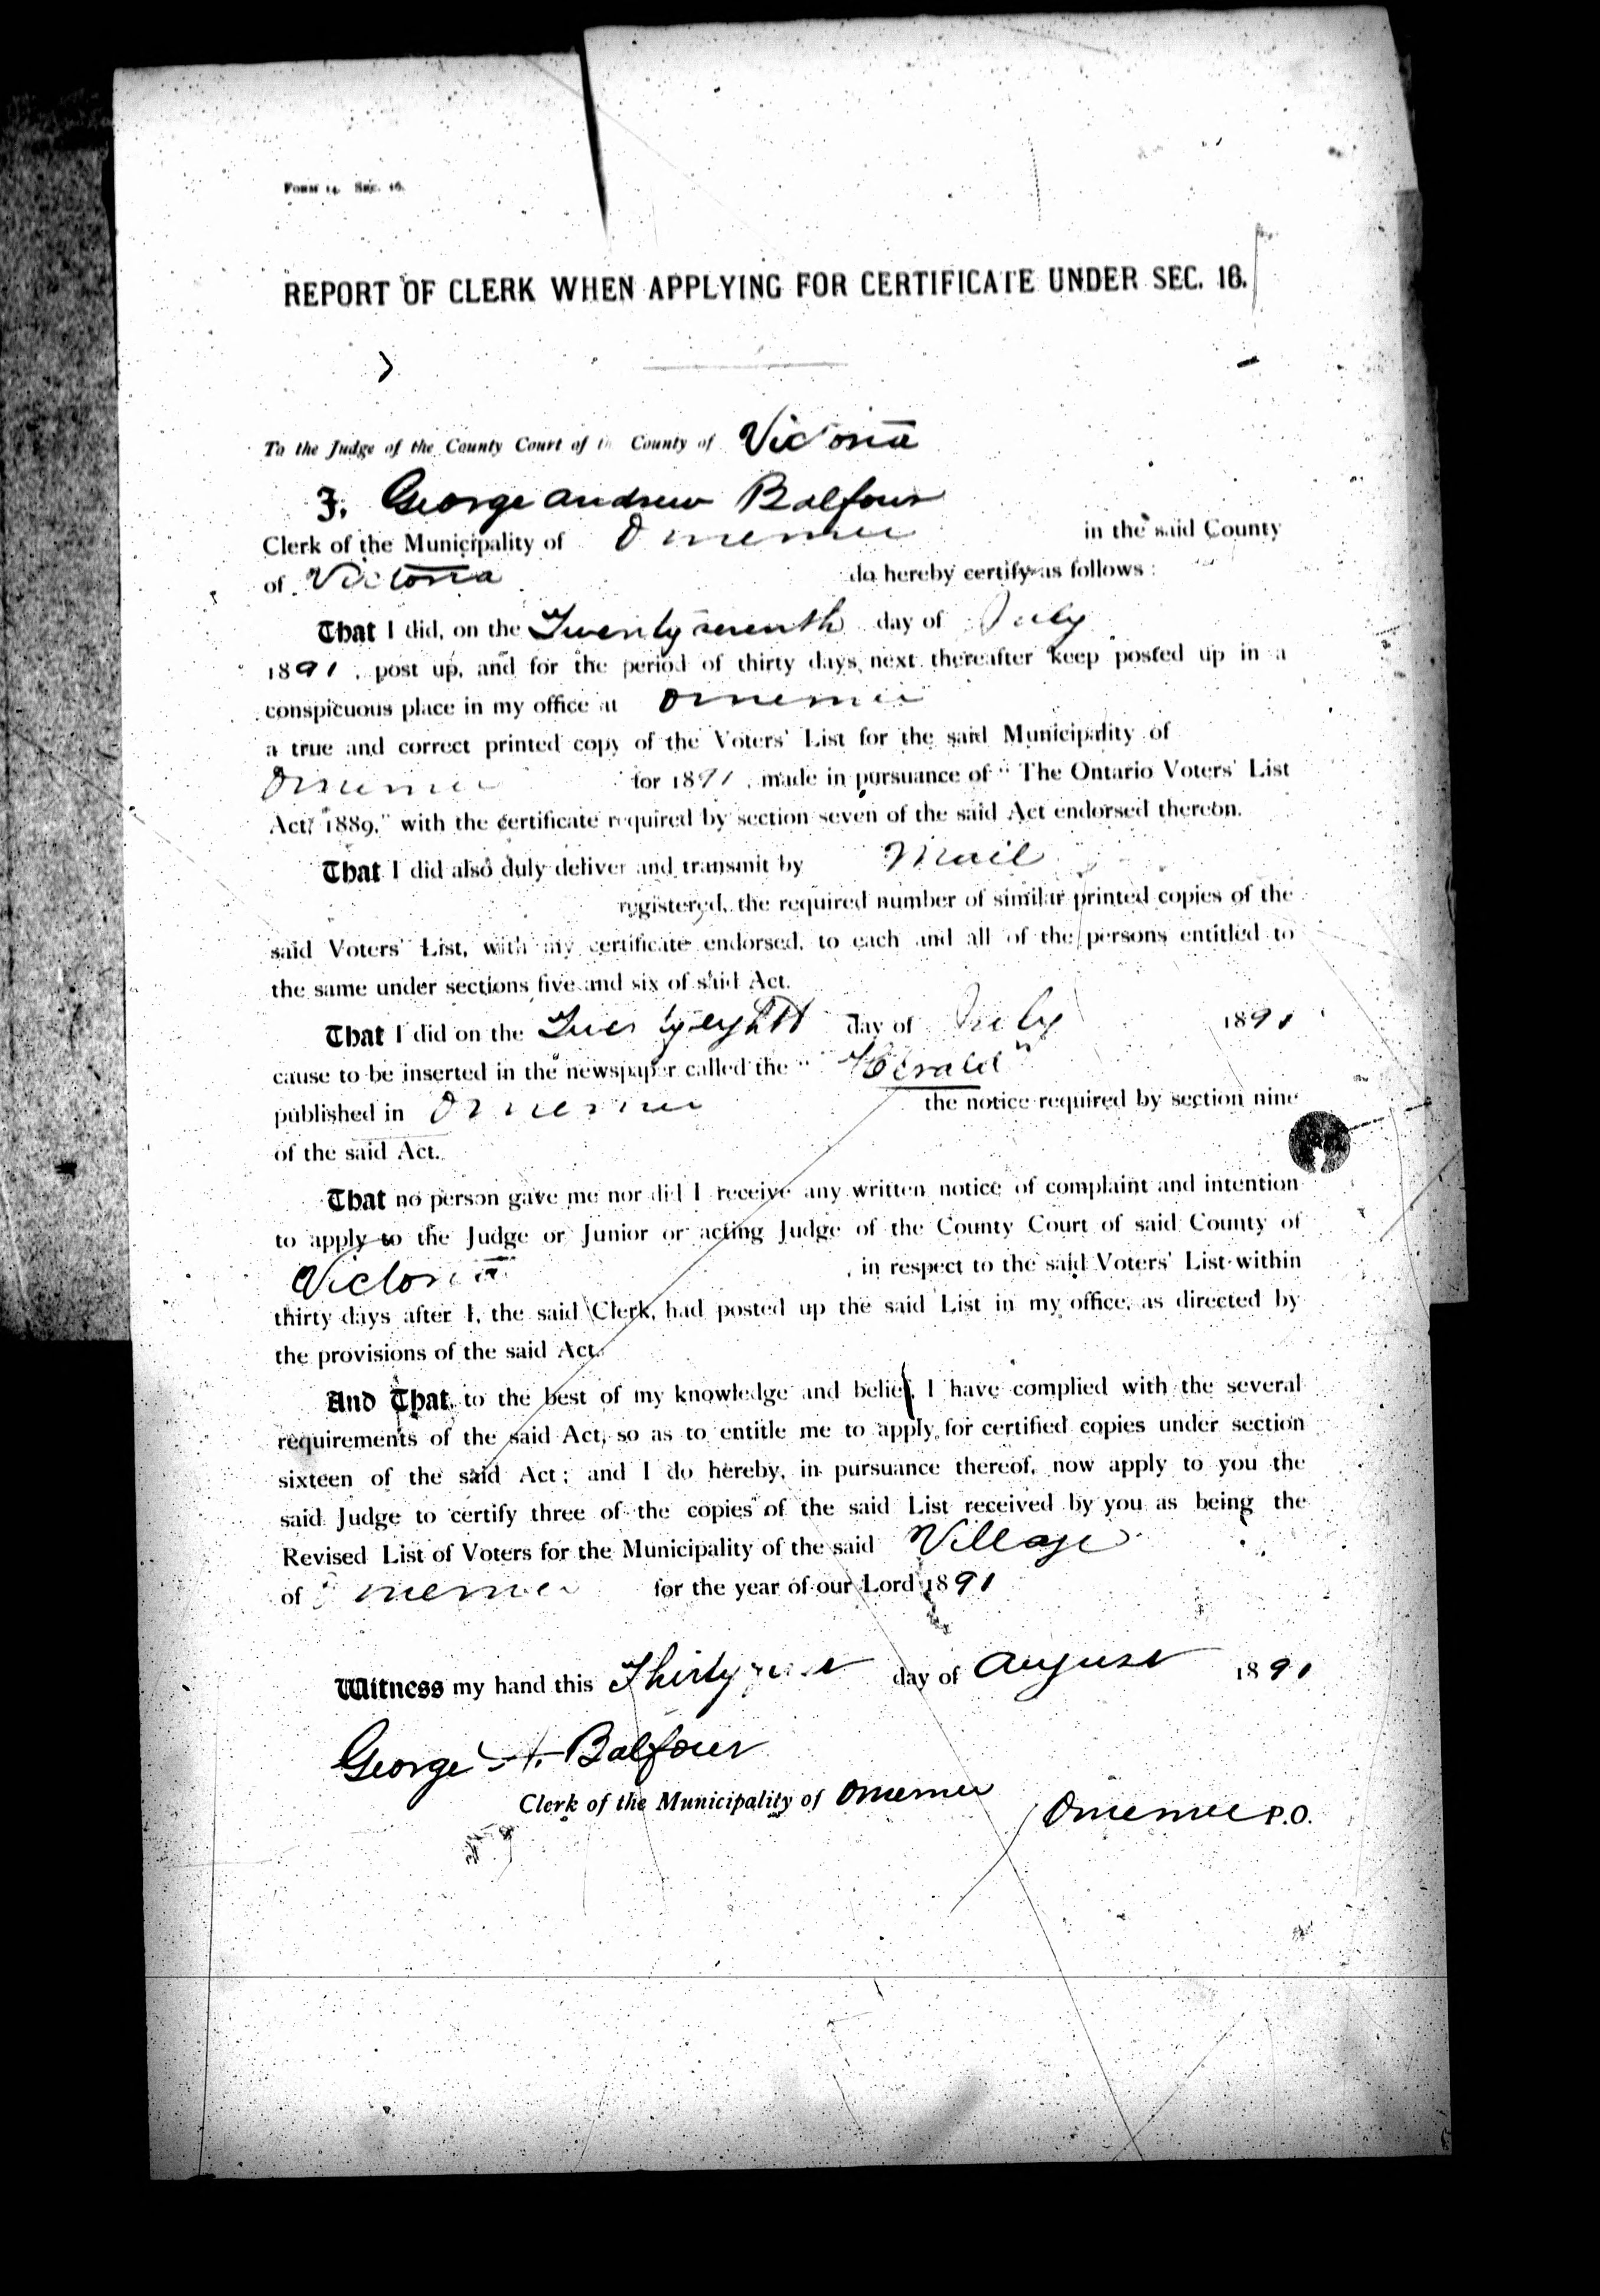 FORM 14. SEC. 16.
REPORT OF CLERK WHEN APPLYING FOR CERTIFICATE UNDER SEC. 16.
To the Judge of the County Court of the County of Victoria
I, George Andrew Balfour
Clerk of the Municipality of Omemee in the said County
of Victoria do hereby certify as follows:
That I did, on the Twenty seventh day of July
1891, post up, and for the period of thirty days next thereafter keep posted up in a
conspicuous place in my office at Omemee
a true and correct printed copy of the Voters' List for the said Municipality of
Omemee for 1891, made in pursuance of "The Ontario Voters' List
Act, 1889," with the certificate required by section seven of the said Act endorsed thereon.
That I did also duly deliver and transmit by Mail
registered, the required number of similar printed copies of the
said Voters' List, with my certificate endorsed, to each and all of the persons entitled to
the same under sections five and six of said Act.
That I did on the Twenty eighth day of July 1891
cause to be inserted in the newspaper called the "Herald"
published in Omemee the notice required by section nine
of the said Act.
That no person gave me nor did I receive any written notice of complaint and intention
to apply to the Judge or Junior or acting Judge of the County Court of said County of
Victoria, in respect to the said Voters' List within
thirty days after I, the said Clerk, had posted up the said List in my office, as directed by
the provisions of the said Act.
And That, to the best of my knowledge and belief, I have complied with the several
requirements of the said Act, so as to entitle me to apply for certified copies under section
sixteen of the said Act; and I do hereby, in pursuance thereof, now apply to you the
said Judge to certify three of the copies of the said List received by you as being the
Revised List of Voters for the Municipality of the said Village
of Omemee for the year of our Lord 1891
Witness my hand this Thirty first day of August 1891
George A. Balfour
Clerk of the Municipality of Omemee
Omemee P.O.